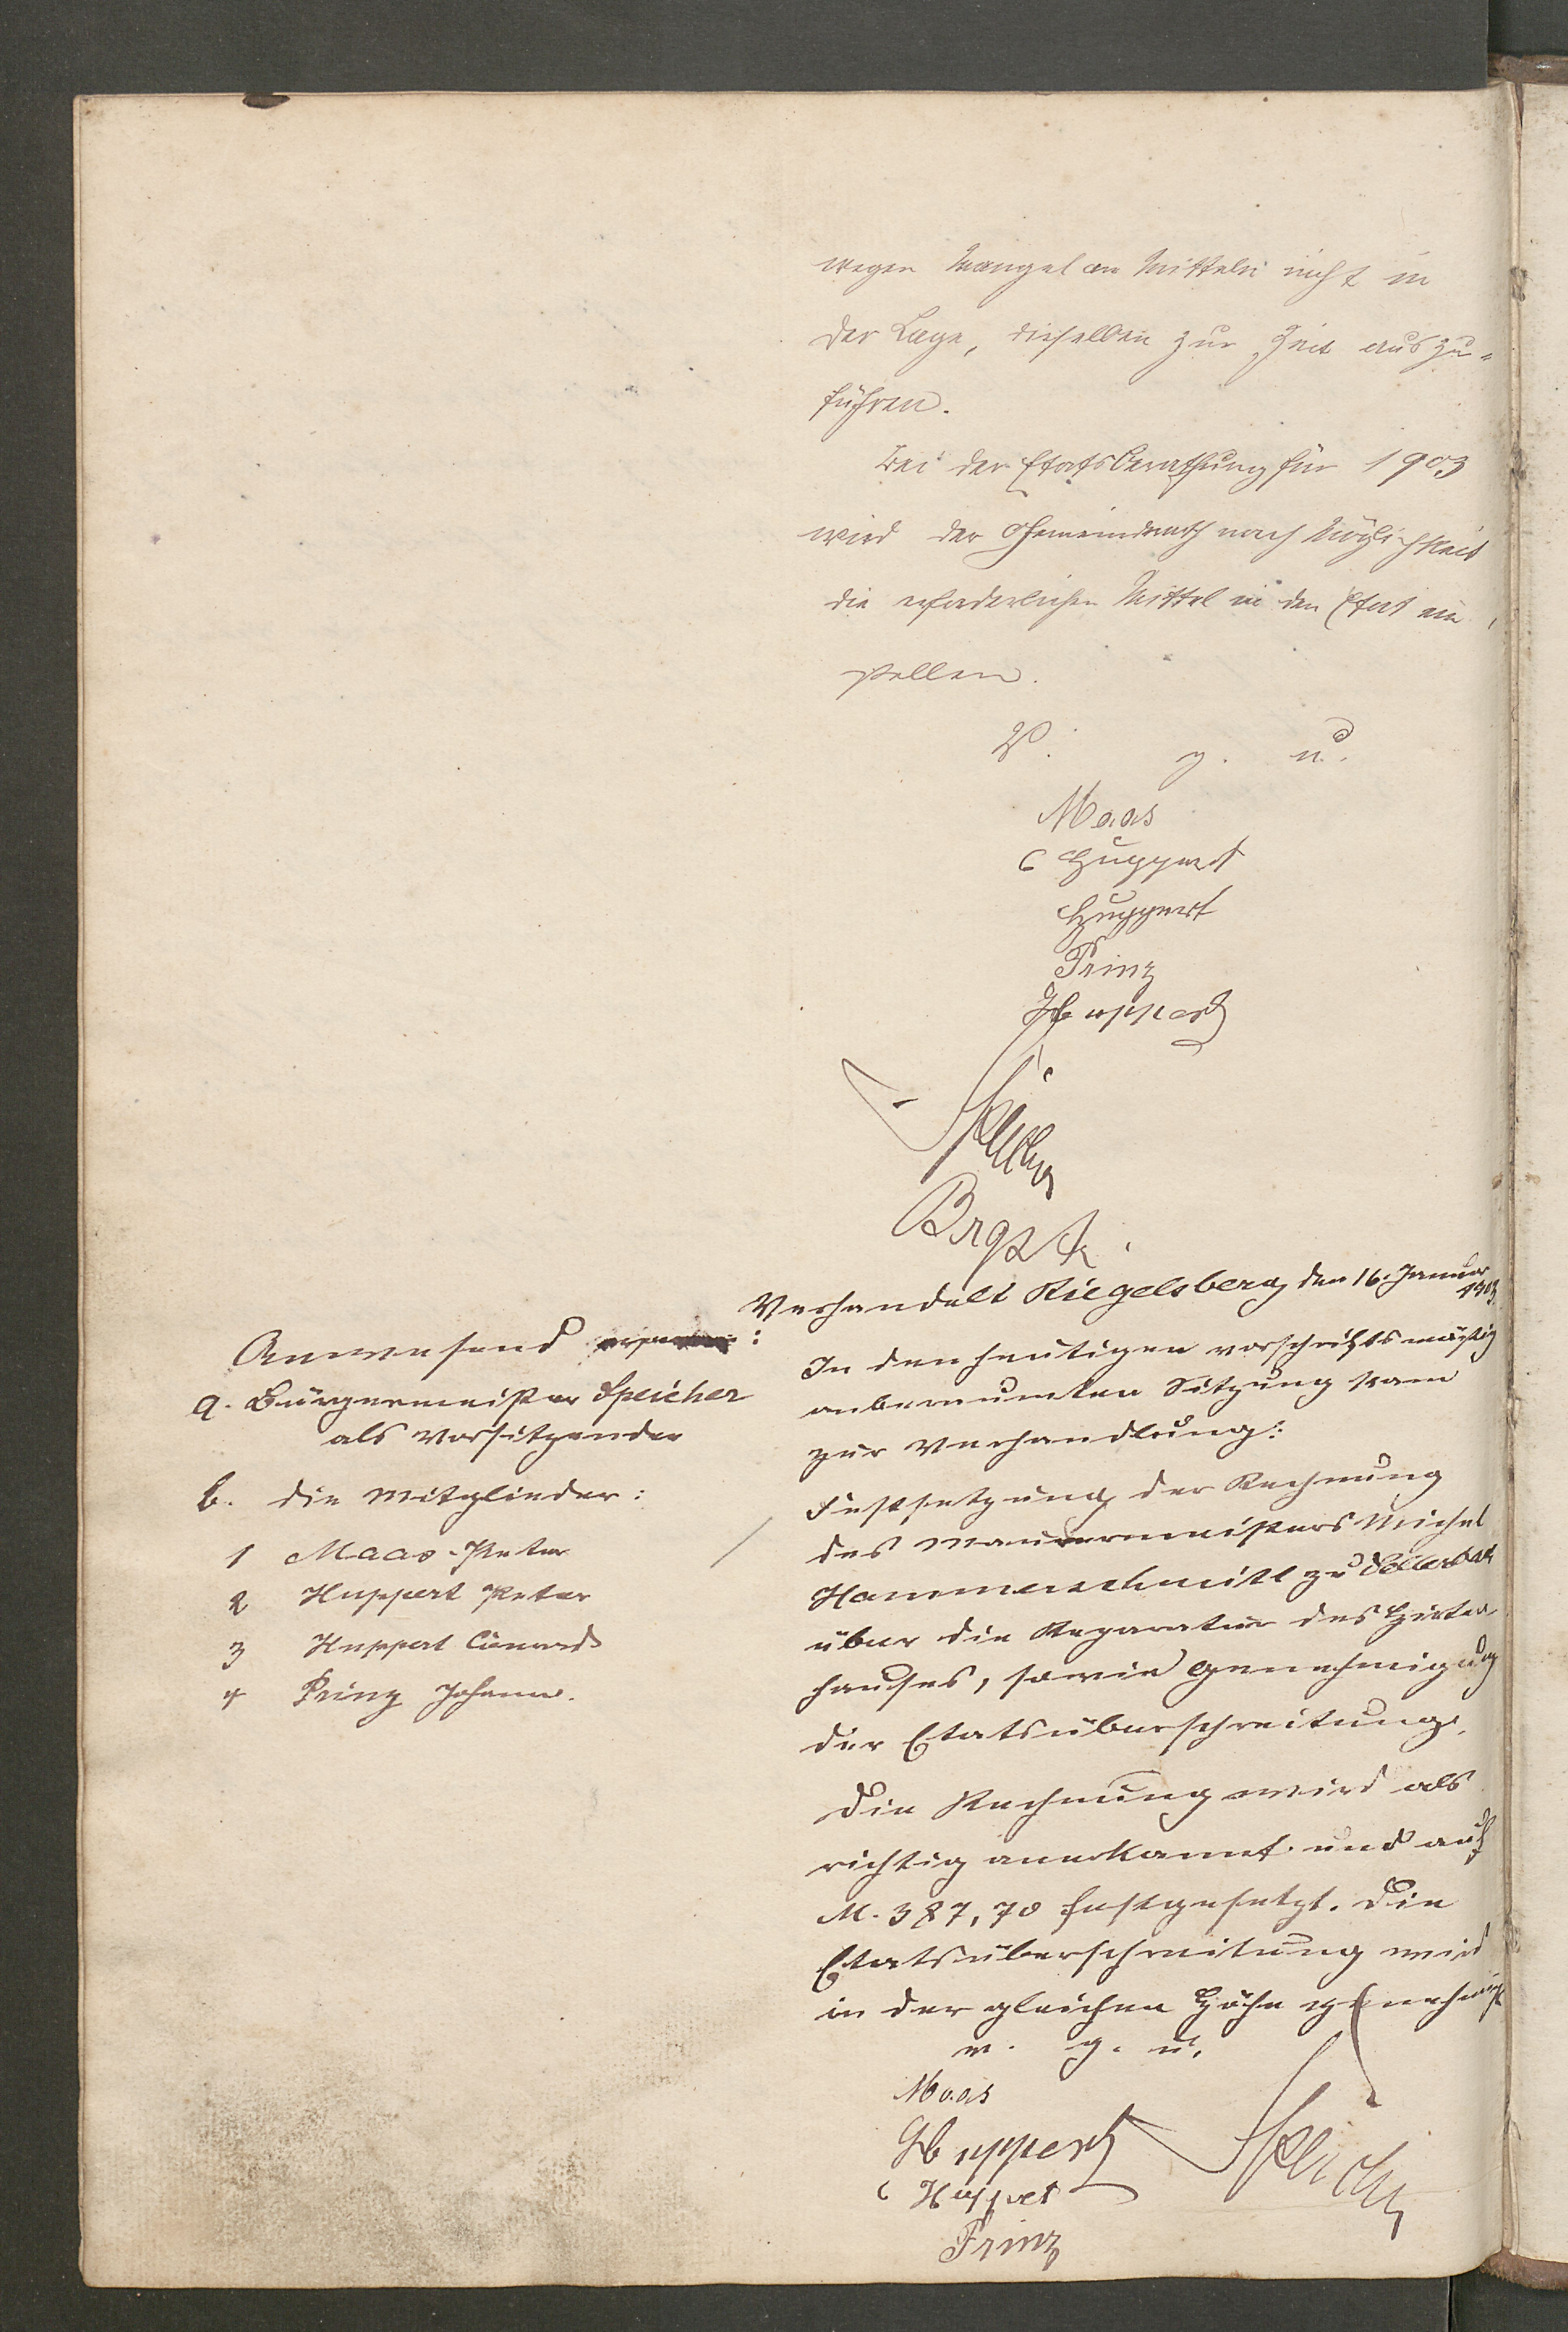 wegen Mangel an Mitteln nicht in
der Lage, dieselben zur Zeit auszu-
führen.
Bei der Etatsberathung für 1903
wird der Gemeinderath nach Möglichkeit
die erforderlichen Mittel in den Etat ein
stellen.
V. g. u.
Maas
C Huppert
Huppert
Prinz
Huppert
Speicher
Brgstr.
Verhandelt Riegelsberg, den 16. Januar
1903.
Anwesend :
a. Bürgermeister Speicher
als Vorsitzender
b. die Mitglieder:
1 Maas Peter
2 Huppert Peter
3 Huppert
4 Prinz Johann.
In den heutigen vorschriftsmäßig
anberaumten Sitzung kam
zur Verhandlung:
Festsetzung der Rechnung
des Mauermeisters Michel
Hammerschmitt zu
über die Reparatur des Hirten
hauses, sowie Genehmigung
der Etatsüberschreitung.
Die Rechnung wird als
richtig anerkannt und auf
M. 387,70 festgesetzt. Die
Etatsüberschreitung wird
in der gleichen Höhe genehmigt
v. g. u.
Maas
Huppert
C Huppert
Prinz
Speicher